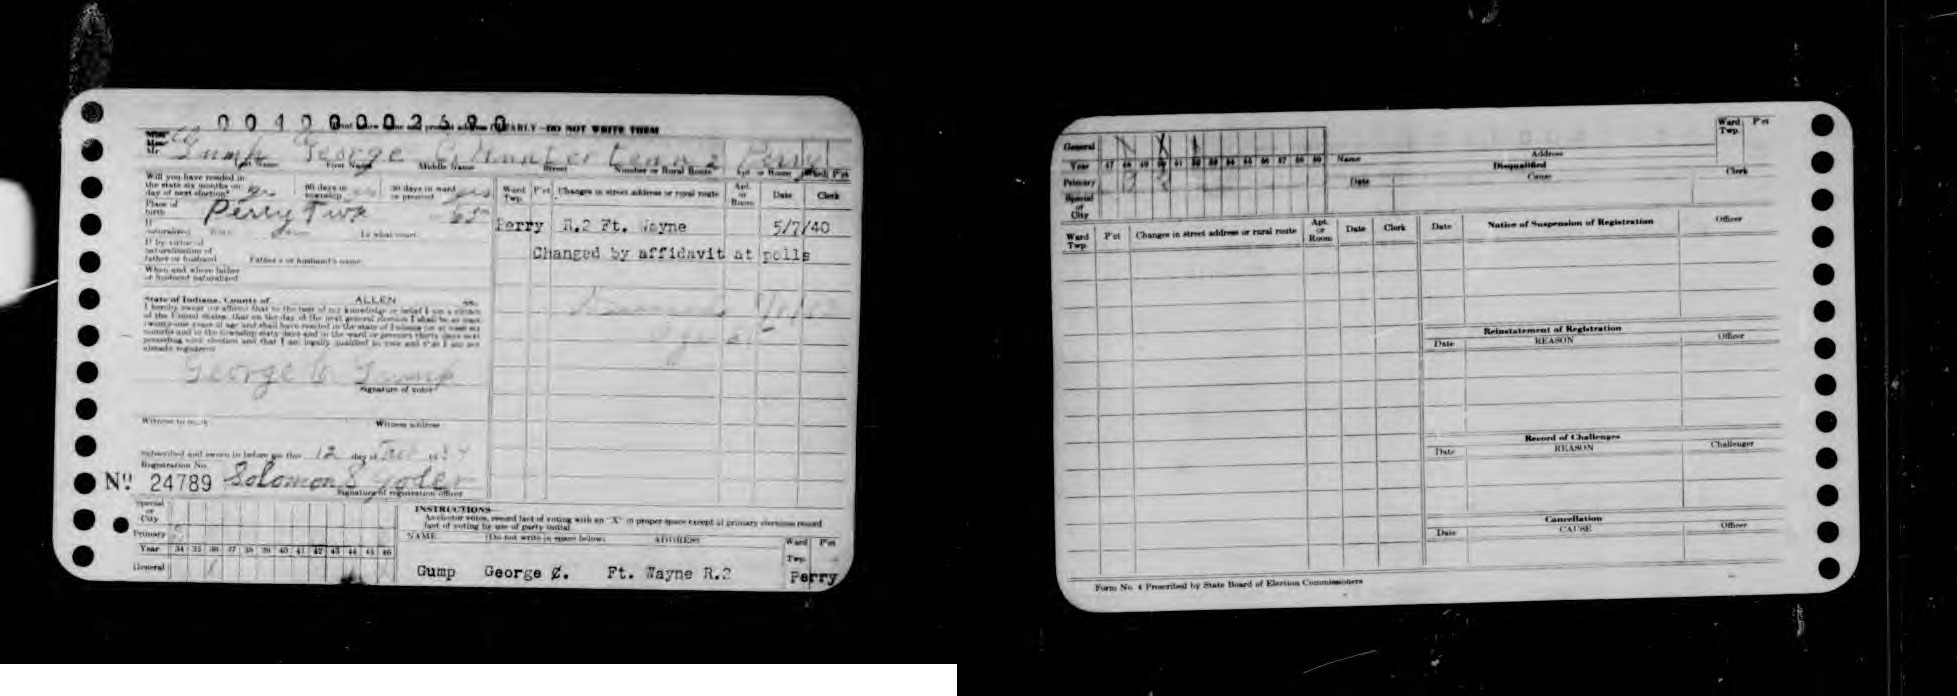 Gump George C. Huntertown 2 Perry
Last Name First Name Middle Name Street Number or Rural Route Apt. or Room Ward P'ct
Will you have resided in
the state six months on
day of next election? yes 60 days in township yes 30 days in ward or precinct yes
Place of birth Perry Twp
If naturalized In what court
If by virtue of
naturalization of
father or husband Father's or husband's name
When and where father
or husband naturalized
State of Indiana, County of ALLEN ss.
I hereby swear (or affirm) that to the best of my knowledge or belief I am a citizen
of the United States, that on the day of the next general election I shall be at least
twenty-one years of age and shall have resided in the state of Indiana for at least six
months and in the township sixty days and in the ward or precinct thirty days next
preceding said election and that I am legally qualified to vote and that I am not
already registered
George C Gump
Signature of voter
Witness to mark Witness address
Subscribed and sworn to before me this 12 day of 1934
Registration No.
No 24789 Solomon S Yoder
Signature of registration officer
Ward Twp. P'ct Changes in street address or rural route Apt. or Room Date Clerk
Perry R.2 Ft. Wayne 5/7/40
Changed by affidavit at polls
Special or City
Primary
Year 34 35 36 37 38 39 40 41 42 43 44 45 46
General
INSTRUCTIONS
As elector votes, record fact of voting with an "X" in proper space except at primary elections record
fact of voting by use of party initial
NAME (Do not write in space below) ADDRESS Ward Twp. P'ct
Gump George C. Ft. Wayne R.2 Perry
General
Year 47 48 49 50 51 52 53 54 55 56 57 58 59
Primary
Special or City
Name Address Ward Twp. P'ct
Disqualified
Date Cause Clerk
Ward Twp. P'ct Changes in street address or rural route Apt. or Room Date Clerk
Date Notice of Suspension of Registration Officer
Reinstatement of Registration
Date REASON Officer
Record of Challenges
Date REASON Challenger
Cancellation
Date CAUSE Officer
Form No. 4 Prescribed by State Board of Election Commissioners